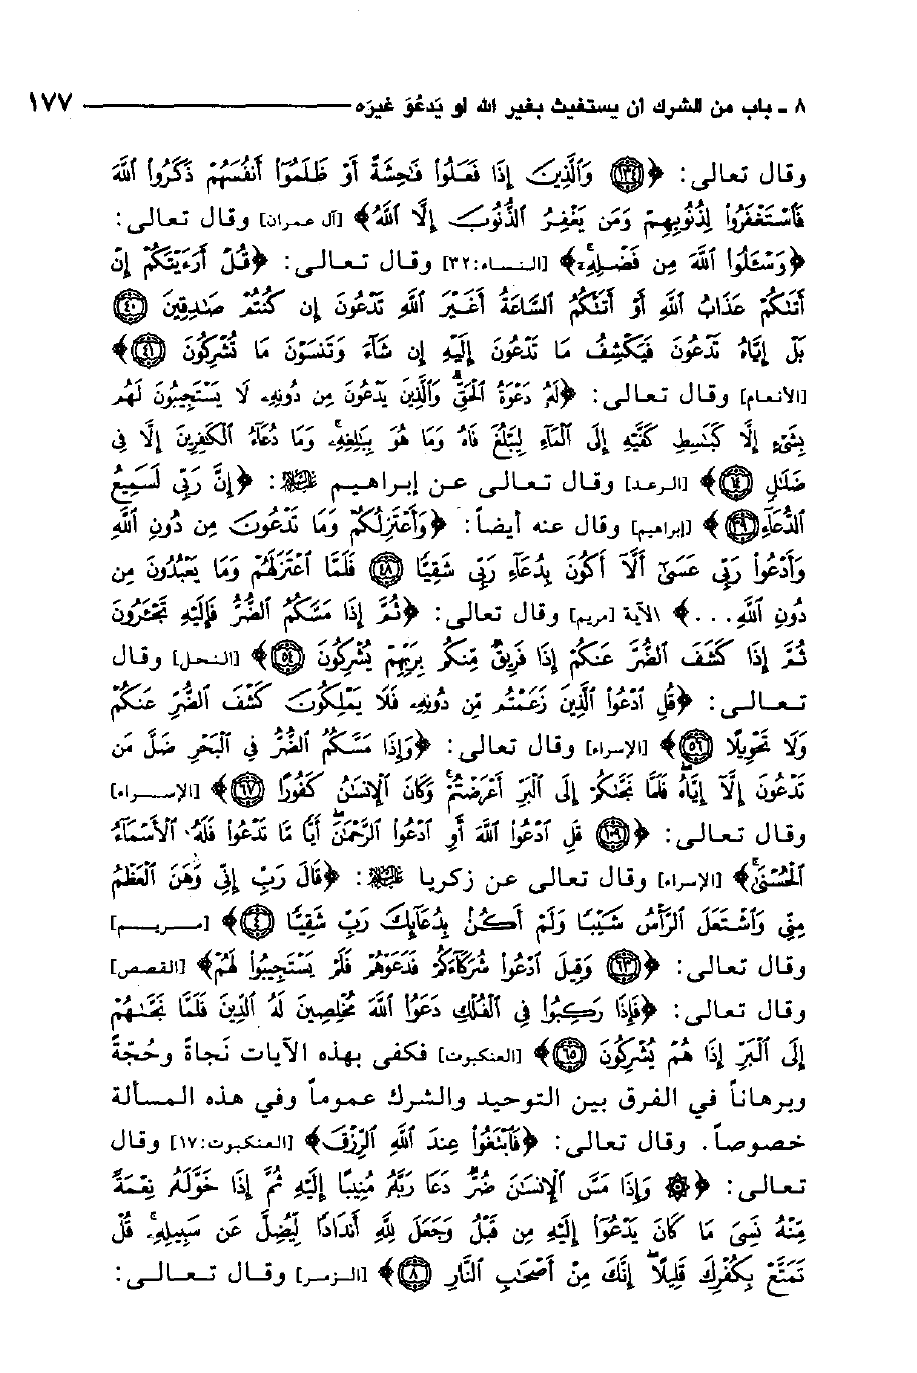 ٨ ـ باب من الشرك أن يستغيث بغير الله أو يَدعُوَ غيرَه ١٧٧
وقال تعالى: ﴿(١٣٤) وَٱلَّذِينَ إِذَا فَعَلُوا۟ فَٰحِشَةً أَوْ ظَلَمُوٓا۟ أَنفُسَهُمْ ذَكَرُوا۟ ٱللَّهَ
فَٱسْتَغْفَرُوا۟ لِذُنُوبِهِمْ وَمَن يَغْفِرُ ٱلذُّنُوبَ إِلَّا ٱللَّهُ﴾ [آل عمران] وقال تعالى:
﴿وَسْـَٔلُوا۟ ٱللَّهَ مِن فَضْلِهِۦٓ﴾ [النساء:٣٢] وقال تعالى: ﴿قُلْ أَرَءَيْتَكُمْ إِنْ
أَتَىٰكُمْ عَذَابُ ٱللَّهِ أَوْ أَتَتْكُمُ ٱلسَّاعَةُ أَغَيْرَ ٱللَّهِ تَدْعُونَ إِن كُنتُمْ صَٰدِقِينَ (٤٠)
بَلْ إِيَّاهُ تَدْعُونَ فَيَكْشِفُ مَا تَدْعُونَ إِلَيْهِ إِن شَآءَ وَتَنسَوْنَ مَا تُشْرِكُونَ (٤١)﴾
[الأنعام] وقال تعالى: ﴿لَهُۥ دَعْوَةُ ٱلْحَقِّ وَٱلَّذِينَ يَدْعُونَ مِن دُونِهِۦ لَا يَسْتَجِيبُونَ لَهُم
بِشَىْءٍ إِلَّا كَبَٰسِطِ كَفَّيْهِ إِلَى ٱلْمَآءِ لِيَبْلُغَ فَاهُ وَمَا هُوَ بِبَٰلِغِهِۦ وَمَا دُعَآءُ ٱلْكَٰفِرِينَ إِلَّا فِى
ضَلَٰلٍ (١٤)﴾ [الرعد] وقال تعالى عن إبراهيم ﷺ: ﴿إِنَّ رَبِّى لَسَمِيعُ
ٱلدُّعَآءِ (٣٩)﴾ [إبراهيم] وقال عنه أيضاً: ﴿وَأَعْتَزِلُكُمْ وَمَا تَدْعُونَ مِن دُونِ ٱللَّهِ
وَأَدْعُوا۟ رَبِّى عَسَىٰٓ أَلَّآ أَكُونَ بِدُعَآءِ رَبِّى شَقِيًّا (٤٨) فَلَمَّا ٱعْتَزَلَهُمْ وَمَا يَعْبُدُونَ مِن
دُونِ ٱللَّهِ...﴾ الآية [مريم] وقال تعالى: ﴿ثُمَّ إِذَا مَسَّكُمُ ٱلضُّرُّ فَإِلَيْهِ تَجْـَٔرُونَ
ثُمَّ إِذَا كَشَفَ ٱلضُّرَّ عَنكُمْ إِذَا فَرِيقٌ مِّنكُم بِرَبِّهِمْ يُشْرِكُونَ (٥٤)﴾ [النحل] وقال
تعالى: ﴿قُلِ ٱدْعُوا۟ ٱلَّذِينَ زَعَمْتُم مِّن دُونِهِۦ فَلَا يَمْلِكُونَ كَشْفَ ٱلضُّرِّ عَنكُمْ
وَلَا تَحْوِيلًا (٥٦)﴾ [الإسراء] وقال تعالى: ﴿وَإِذَا مَسَّكُمُ ٱلضُّرُّ فِى ٱلْبَحْرِ ضَلَّ مَن
تَدْعُونَ إِلَّآ إِيَّاهُ فَلَمَّا نَجَّىٰكُمْ إِلَى ٱلْبَرِّ أَعْرَضْتُمْ وَكَانَ ٱلْإِنسَٰنُ كَفُورًا (٦٧)﴾ [الإسراء]
وقال تعالى: ﴿(١٠٩) قُلِ ٱدْعُوا۟ ٱللَّهَ أَوِ ٱدْعُوا۟ ٱلرَّحْمَٰنَ أَيًّا مَّا تَدْعُوا۟ فَلَهُ ٱلْأَسْمَآءُ
ٱلْحُسْنَىٰ﴾ [الإسراء] وقال تعالى عن زكريا ﷺ: ﴿قَالَ رَبِّ إِنِّى وَهَنَ ٱلْعَظْمُ
مِنِّى وَٱشْتَعَلَ ٱلرَّأْسُ شَيْبًا وَلَمْ أَكُنۢ بِدُعَآئِكَ رَبِّ شَقِيًّا (٤)﴾ [مريم]
وقال تعالى: ﴿(٦٣) وَقِيلَ ٱدْعُوا۟ شُرَكَآءَكُمْ فَدَعَوْهُمْ فَلَمْ يَسْتَجِيبُوا۟ لَهُمْ﴾ [القصص]
وقال تعالى: ﴿فَإِذَا رَكِبُوا۟ فِى ٱلْفُلْكِ دَعَوُا۟ ٱللَّهَ مُخْلِصِينَ لَهُ ٱلدِّينَ فَلَمَّا نَجَّىٰهُمْ
إِلَى ٱلْبَرِّ إِذَا هُمْ يُشْرِكُونَ (٦٥)﴾ [العنكبوت] فكفى بهذه الآيات نَجاةً وحُجّةً
وبرهاناً في الفرق بين التوحيد والشرك عموماً وفي هذه المسألة
خصوصاً. وقال تعالى: ﴿فَٱبْتَغُوا۟ عِندَ ٱللَّهِ ٱلرِّزْقَ﴾ [العنكبوت:١٧] وقال
تعالى: ﴿۞ وَإِذَا مَسَّ ٱلْإِنسَٰنَ ضُرٌّ دَعَا رَبَّهُۥ مُنِيبًا إِلَيْهِ ثُمَّ إِذَا خَوَّلَهُۥ نِعْمَةً
مِّنْهُ نَسِىَ مَا كَانَ يَدْعُوٓا۟ إِلَيْهِ مِن قَبْلُ وَجَعَلَ لِلَّهِ أَندَادًا لِّيُضِلَّ عَن سَبِيلِهِۦ قُلْ
تَمَتَّعْ بِكُفْرِكَ قَلِيلًا إِنَّكَ مِنْ أَصْحَٰبِ ٱلنَّارِ (٨)﴾ [الزمر] وقال تعالى: